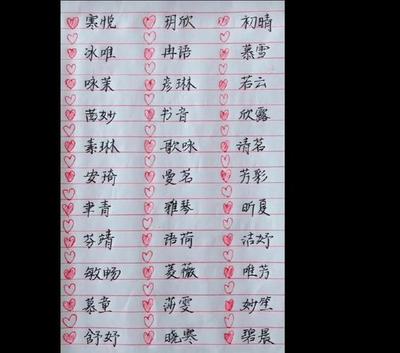 寒悦 玥欣 初晴
冰唯 冉语 慕雪
咏茉 彦琳 若云
茵妙 书音 欣露
素琳 歌咏 诗茗
安琦 爱茗 芳彩
聿青 雅琴 昕夏
芬靖 语荷 洁妤
敏畅 菱薇 唯芳
慕童 莎雯 妙笙
舒妤 晓寒 碧晨